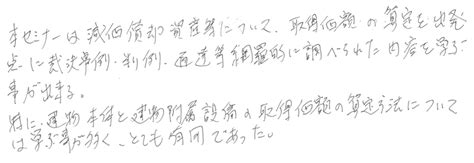 本セミナーは減価償却資産等について、取得価額の算定を出発
点に裁決事例、判例、通達等網羅的に調べられた内容を学ぶ
事が出来る。
特に、建物本体と建物附属設備の取得価額の算定方法について
は学ぶ事が多く、とても有同であった。